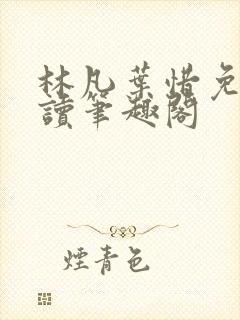 林凡葉惜免
讀筆趣閣
煙青色